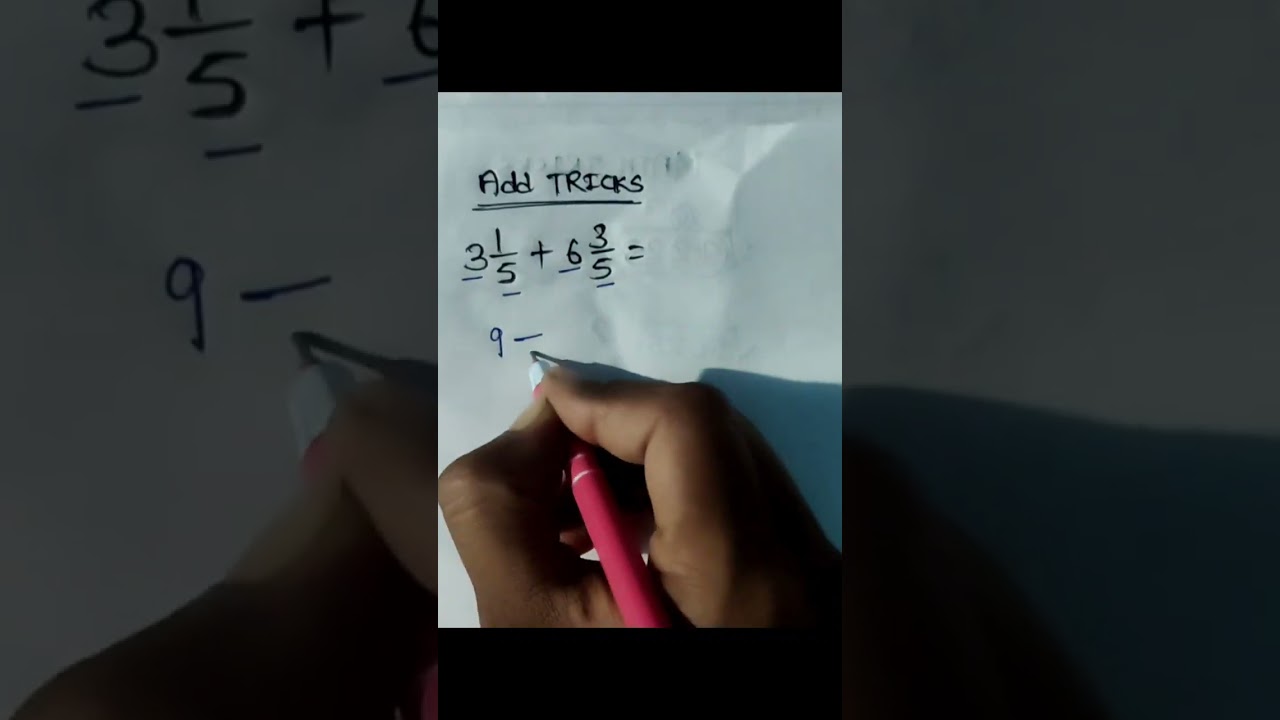 Add TRICKS
3 1/5 + 6 3/5 =
9 —